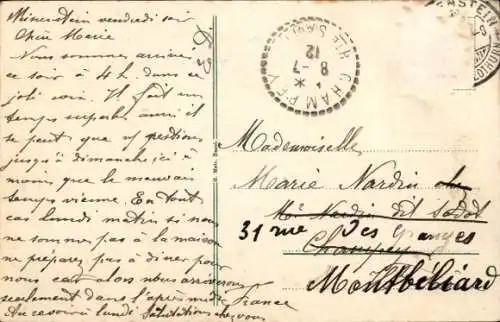 Minenstein vendredi soir
Chère Marie
Nous sommes arrivés
ce soir à 4 h. dans ce
joli coin. Il fait un
temps superbe aussi il
se peut que ns restions
jusqu'à dimanche ici à
moins que le mauvais
temps vienne. En tout
cas lundi matin si nous
ne sommes pas à la maison
ne préparez pas à dîner pour
nous car alors nous arriverons
seulement dans l'après midi
Au revoir à lundi Salutations chez vous
CHAMPEY
HTE SAÔNE
8 -7
12
Mademoiselle
Marie Nardin
Mr Nardin dit Sadot
31 rue Des Granges
Champey
Montbéliard
France